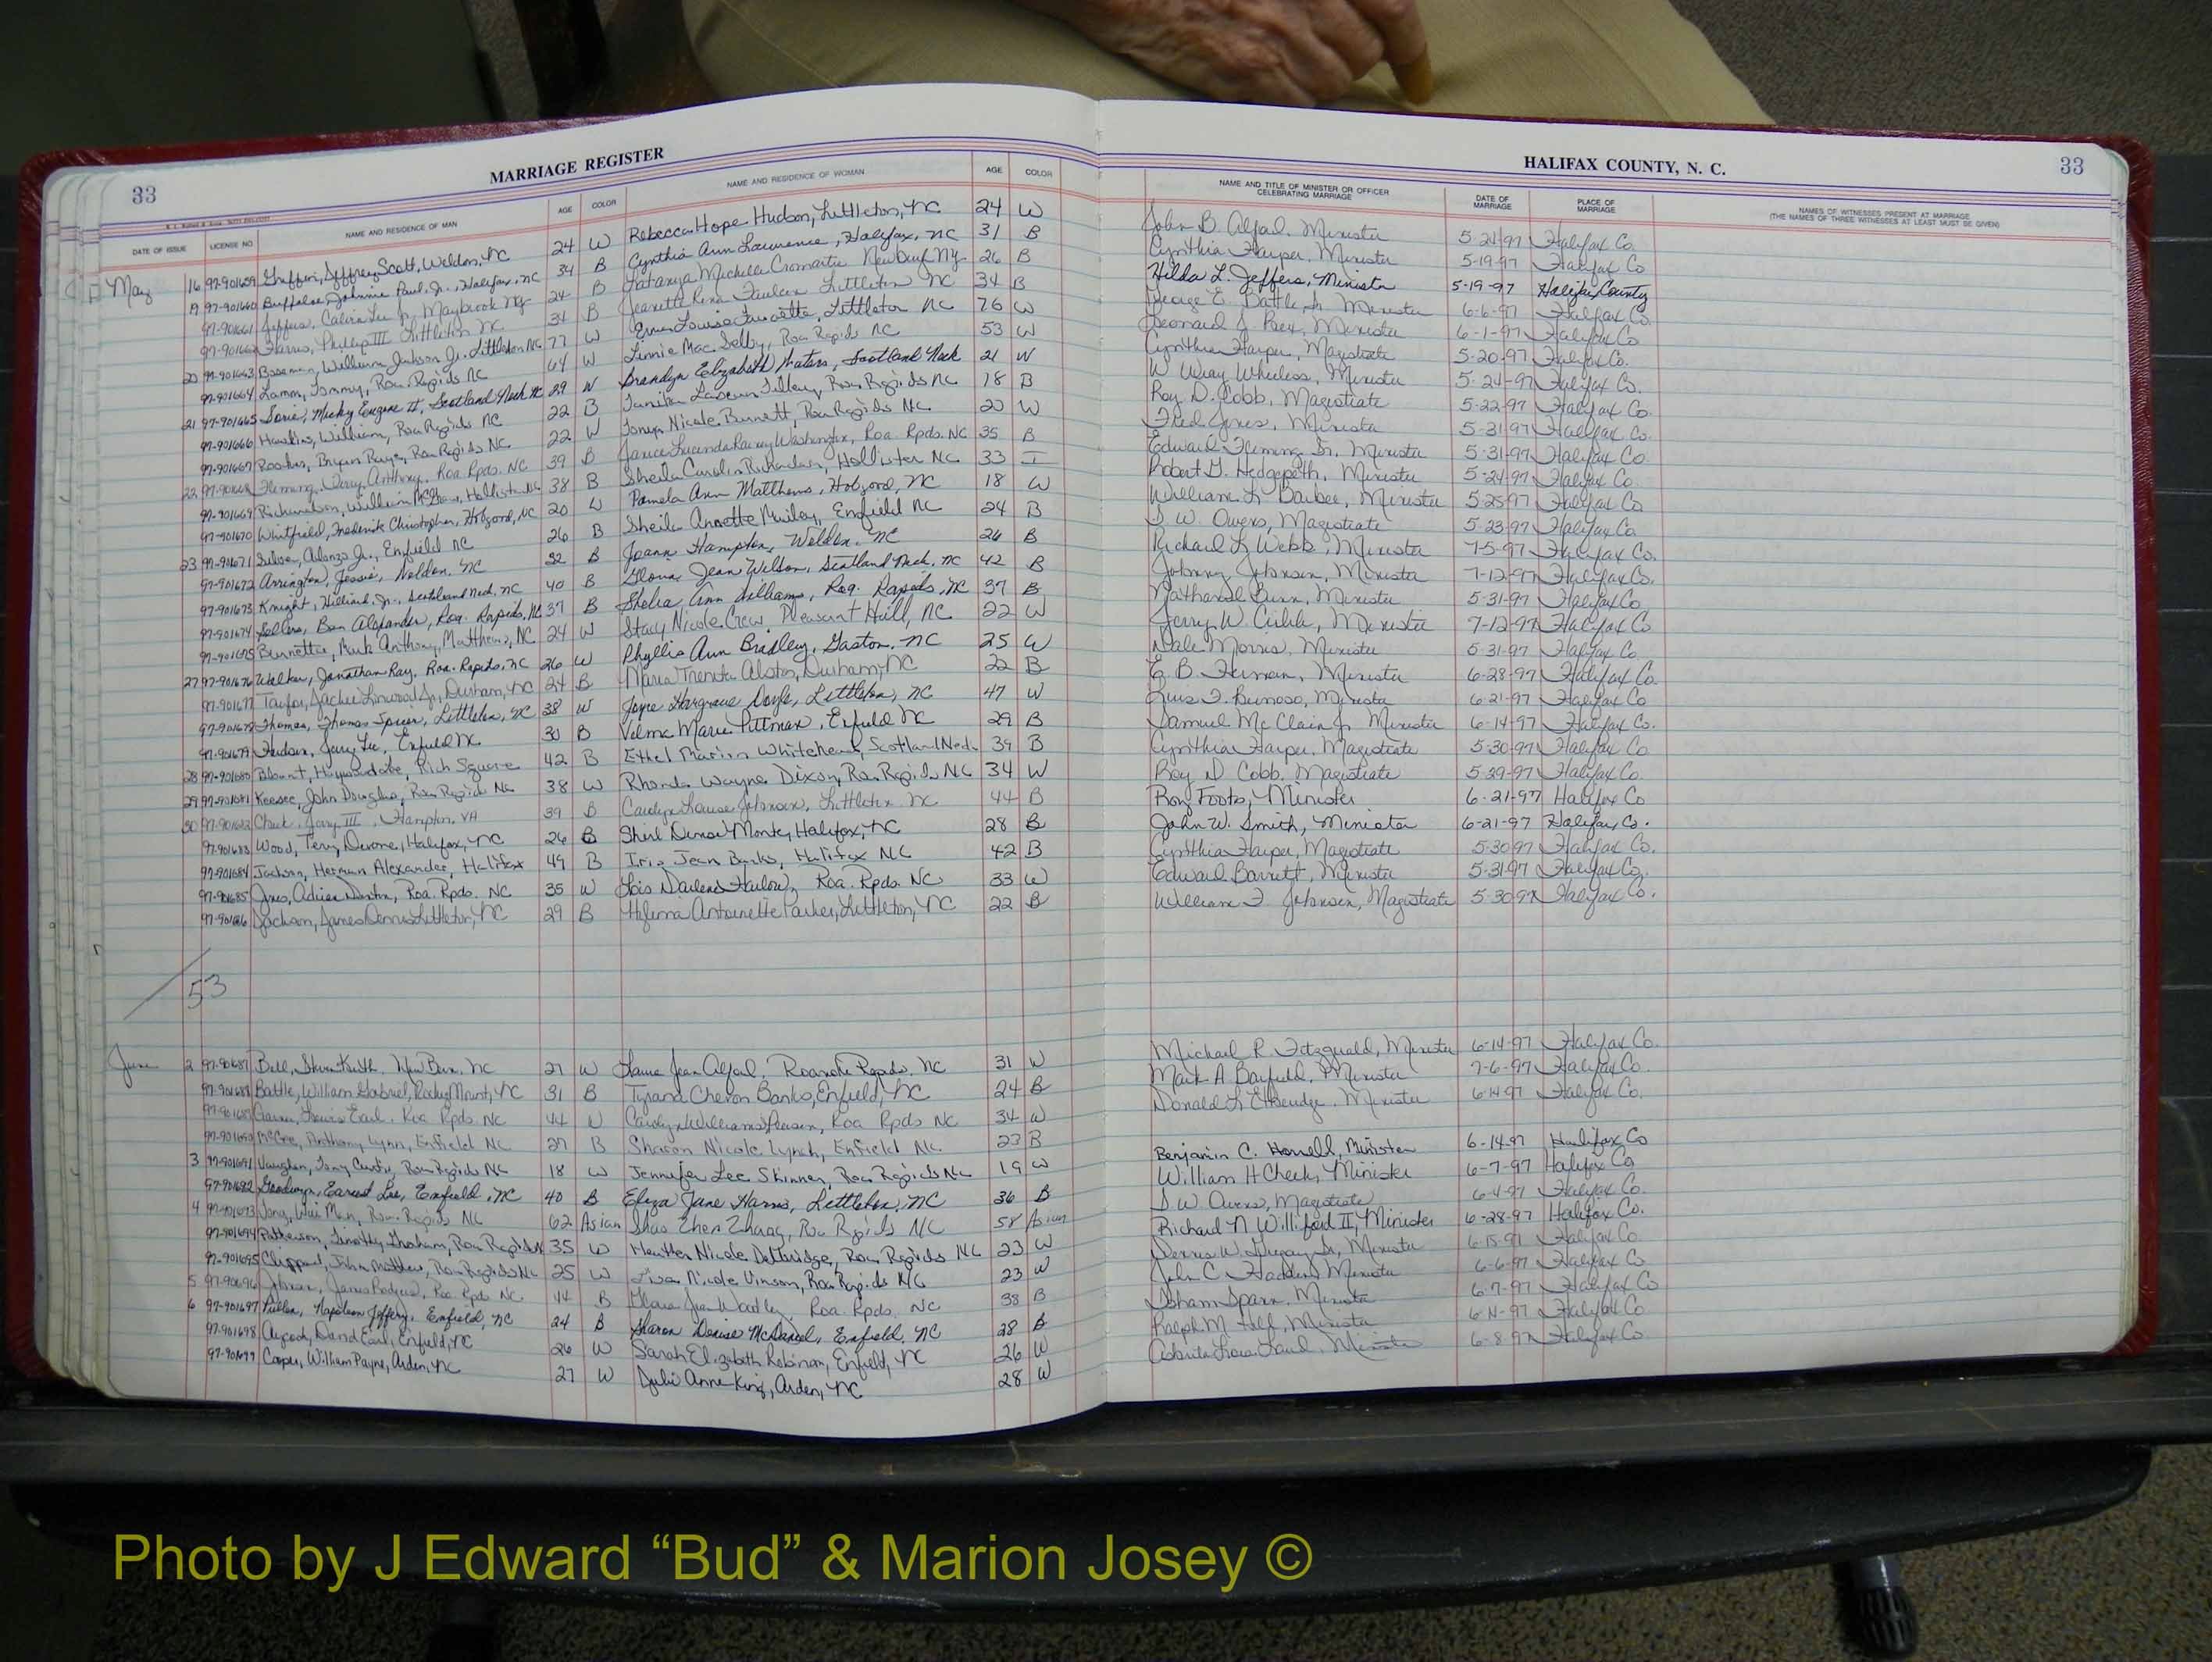 33 MARRIAGE REGISTER
HALIFAX COUNTY, N. C. 33
DATE OF ISSUE LICENSE NO NAME AND RESIDENCE OF MAN AGE COLOR NAME AND RESIDENCE OF WOMAN AGE COLOR
NAME AND TITLE OF MINISTER OR OFFICER CELEBRATING MARRIAGE DATE OF MARRIAGE PLACE OF MARRIAGE NAMES OF WITNESSES PRESENT AT MARRIAGE (THE NAMES OF THREE WITNESSES AT LEAST MUST BE GIVEN)
May 16 97-901659 Jeffrey Scott, Weldon, NC 24 W Rebecca Hope Hudson, Littleton, NC 24 W
19 97-901660 Johnnie Paul, Jr., Halifax, NC 34 B Cynthia Ann Lawrence, Halifax, NC 31 B
97-901661 Jeffers, Calvin Lee Jr, Maybrook NY 24 B Michelle Cromartie Newburg NY 26 B
97-901662 Harris, Phillip III Littleton NC 34 B Jeanette Littleton NC 34 B
20 97-901663 Boseman, William Jackson Jr. Littleton NC 77 W Louise Littleton NC 76 W
97-901664 Lamm, Tommy, Roa Rapids NC 64 W Linnie Mae Selby, Roa Rapids NC 53 W
21 97-901665 Micky Eugene II, Scotland Neck NC 29 W Brandyn Elizabeth Waters, Scotland Neck 21 W
97-901666 Hawkins, William, Roa Rapids NC 22 B Roa Rapids NC 18 B
97-901667 Roa Rapids NC 22 W Nicole Burnett, Roa Rapids NC 20 W
22 97-901668 Fleming, Anthony, Roa Rpds. NC 39 B Janice Lucinda Washington, Roa. Rpds. NC 35 B
97-901669 Richardson, William McGraw, Hollister NC 38 B Sheila Carolin Richardson, Hollister NC 33 I
97-901670 Whitfield, Frederick Christopher, Hobgood, NC 20 W Pamela Ann Matthews, Hobgood, NC 18 W
23 97-901671 Silver, Alonzo Jr., Enfield NC 26 B Sheila Annette Enfield NC 24 B
97-901672 Arrington, Jessie, Weldon, NC 32 B Joann Hampton, Weldon, NC 26 B
97-901673 Knight, Hilliard, Jr., Scotland Neck, NC 40 B Gloria Jean Wilson, Scotland Neck, NC 42 B
97-901674 Sellers, Ben Alexander, Roa. Rapids, NC 37 B Shelia Ann Williams, Roa. Rapids, NC 37 B
97-901675 Burnette, Mark Anthony, Matthews, NC 24 W Stacy Nicole Crew Pleasant Hill, NC 22 W
27 97-901676 Walker, Jonathan Ray, Roa. Rapids, NC 26 W Phyllis Ann Bradley, Gaston, NC 25 W
97-901677 Taylor, Jackie Linwood Jr., Durham, NC 24 B Maria Alston, Durham, NC 22 B
97-901678 Thomas, Thomas Littleton, NC 38 W Joyce Hargrove Doyle, Littleton, NC 47 W
97-901679 Hudson, Jerry Lee, Enfield NC 30 B Velma Marie Pittman, Enfield NC 29 B
28 97-901680 Blount, Rich Square 42 B Ethel Marion Whitehead, Scotland Neck 39 B
29 97-901681 Keesee, John Douglas, Roa Rapids NC 38 W Rhonda Wayne Dixon, Roa Rapids NC 34 W
30 97-901682 Cheek, III, Hampton, VA 39 B Carolyn Louise Johnson, Littleton NC 44 B
97-901683 Wood, Terry Derone, Halifax, NC 26 B Denise Halifax, NC 28 B
97-901684 Jackson, Herman Alexander, Halifax 49 B Iris Jean Banks, Halifax NC 42 B
97-901685 Roa. Rpds. NC 35 W Lois Darlene Harlow, Roa. Rpds. NC 33 W
97-901686 Jackson, James Littleton, NC 29 B Antoinette Parker, Littleton, NC 22 B
53
June 2 97-901687 Bell, Steven Keith New Bern, NC 27 W Laura Jean Alford, Roanoke Rapids, NC 31 W
97-901688 Battle, William Gabriel, Rocky Mount, NC 31 B Tyrana Cheron Banks, Enfield, NC 24 B
97-901689 Earl, Roa Rpds. NC 44 W Carolyn Williams Roa Rpds NC 34 W
97-901690 McGee, Anthony Lynn, Enfield NC 27 B Sharon Nicole Lynch, Enfield NC 23 B
3 97-901691 Vaughan, Tony Curtis, Roa Rapids NC 18 W Jennifer Lee Skinner, Roa Rapids NC 19 W
97-901692 Goodwyn, Earnest Lee, Enfield, NC 40 B Eliza Jane Harris, Littleton, NC 36 B
4 97-901693 Roa. Rapids NC 62 Asian Shao Zhen Zhang, Roa Rapids NC 58 Asian
97-901694 Patterson, Timothy Graham, Roa Rapids NC 35 W Heather Nicole Roa Rapids NC 23 W
97-901695 John Matthew, Roa Rapids NC 25 W Lisa Nicole Vinson, Roa Rapids NC 23 W
5 97-901696 Johnson, James Roa. Rpds. NC 44 B Jean Roa. Rpds. NC 38 B
6 97-901697 Pullen, Napoleon Jeffery, Enfield, NC 24 B Sharon Denise McDaniel, Enfield, NC 28 B
97-901698 Aycock, David Earl, Enfield, NC 26 W Sarah Elizabeth Robinson, Enfield, NC 26 W
97-901699 Cooper, William Payne, Arden, NC 27 W Julie Anne King, Arden, NC 28 W
John B. Alford, Minister 5-24-97 Halifax Co.
Cynthia Harper, Minister 5-19-97 Halifax Co
Hilda L. Jeffers, Minister 5-19-97 Halifax County
George E. Battle, Jr Minister 6-6-97 Halifax Co.
Leonard J. Minister 6-1-97 Halifax Co
Cynthia Harper, Magistrate 5-20-97 Halifax Co.
W Wray Wheeless, Minister 5-24-97 Halifax Co.
Roy D. Cobb, Magistrate 5-22-97 Halifax Co.
Fred Jones, Minister 5-31-97 Halifax Co.
Edward Fleming Sr. Minister 5-31-97 Halifax Co
Robert G. Hedgepeth, Minister 5-24-97 Halifax Co
William L Barbee, Minister 5-25-97 Halifax Co
S W. Owens, Magistrate 5-23-97 Halifax Co.
Richard L Webb, Minister 7-5-97 Halifax Co.
Johnny Johnson, Minister 7-12-97 Halifax Co.
Nathaniel Minister 5-31-97 Halifax Co
Jerry W. Minister 7-12-97 Halifax Co
Dale Morris, Minister 5-31-97 Halifax Co
E. B. Minister 6-28-97 Halifax Co.
Luis F. Minister 6-21-97 Halifax Co
Samuel McClain Jr Minister 6-14-97 Halifax Co.
Cynthia Harper, Magistrate 5-30-97 Halifax Co
Roy D Cobb, Magistrate 5-29-97 Halifax Co.
Roy Foots, Minister 6-21-97 Halifax Co
John W. Smith, Minister 6-21-97 Halifax, Co.
Cynthia Harper, Magistrate 5-30-97 Halifax Co.
Edward Barrett, Minister 5-31-97 Halifax Co.
William F Johnson, Magistrate 5-30-97 Halifax Co.
Michael R. Fitzgerald, Minister 6-14-97 Halifax Co.
Mark A Barfield, Minister 7-6-97 Halifax Co.
Donald L Etheridge, Minister 6-14-97 Halifax Co.
Benjamin C. Howell, Minister 6-14-97 Halifax Co
William H Cheek, Minister 6-7-97 Halifax Co
S W Owens, Magistrate 6-4-97 Halifax Co.
Richard N Williford II, Minister 6-28-97 Halifax Co.
Dennis W. Gregory Sr, Minister 6-15-97 Halifax Co
John C. Minister 6-6-97 Halifax Co
Isham Minister 6-7-97 Halifax Co
Ralph M. Minister 6-11-97 Halifax Co
Minister 6-8-97 Halifax Co
Photo by J Edward “Bud” & Marion Josey ©